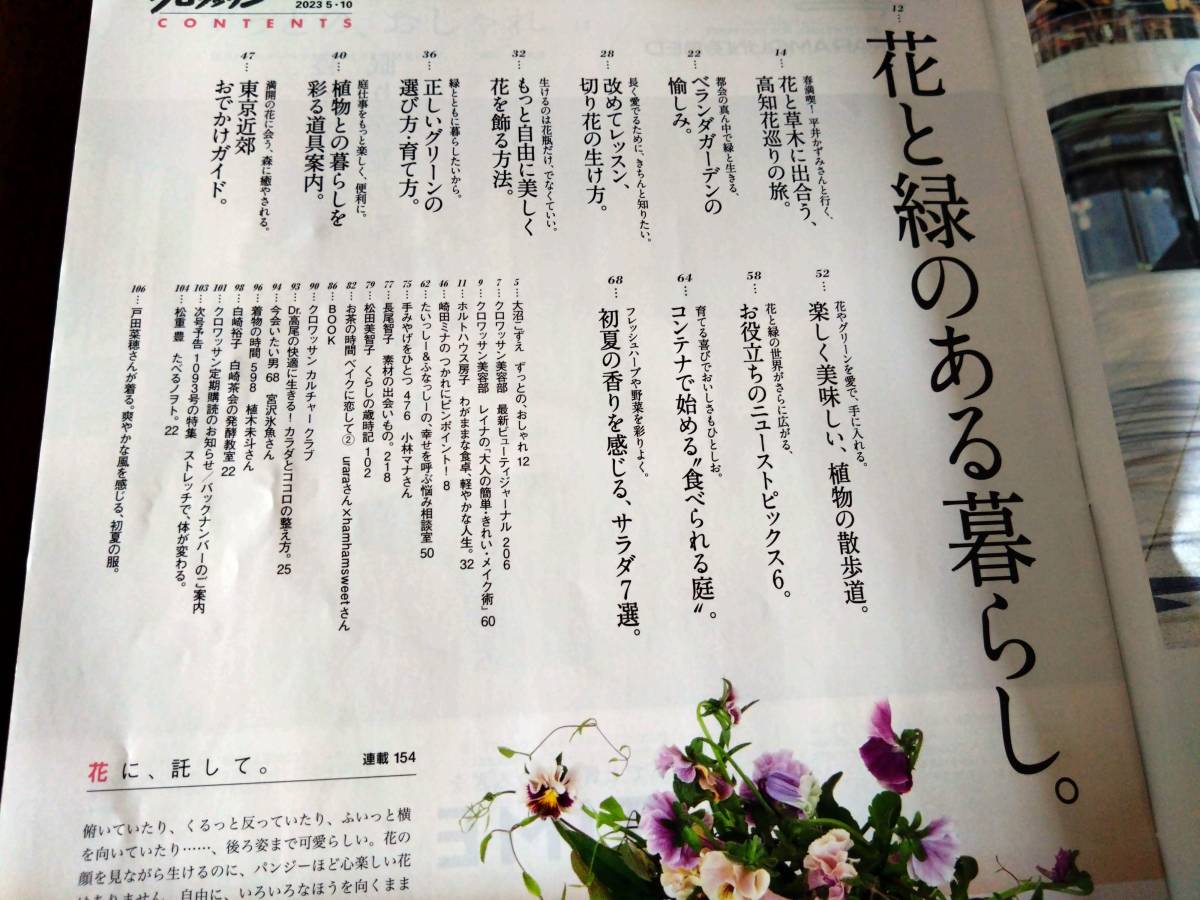 クロワッサン
2023 5・10
CONTENTS
12…
花と緑のある暮らし。
14…
春満喫！ 平井かずみさんと行く、
花と草木に出合う、
高知花巡りの旅。
22…
都会の真ん中で緑と生きる、
ベランダガーデンの
愉しみ。
28…
長く愛でるために、きちんと知りたい。
改めてレッスン、
切り花の生け方。
32…
生けるのは花瓶だけ、でなくていい。
もっと自由に美しく
花を飾る方法。
36…
緑とともに暮らしたいから。
正しいグリーンの
選び方・育て方。
40…
庭仕事をもっと楽しく、便利に。
植物との暮らしを
彩る道具案内。
47…
満開の花に会う、森に癒やされる。
東京近郊
おでかけガイド。
52…
花やグリーンを愛で、手に入れる。
楽しく美味しい、植物の散歩道。
58…
花と緑の世界がさらに広がる、
お役立ちのニューストピックス6。
64…
育てる喜びでおいしさもひとしお。
コンテナで始める〝食べられる庭〟。
68…
フレッシュハーブや野菜を彩りよく。
初夏の香りを感じる、サラダ7選。
5…大沼こずえ ずっとの、おしゃれ 12
7…クロワッサン美容部 最新ビューティジャーナル 206
9…クロワッサン美容部 レイナの「大人の簡単・きれい・メイク術」60
11…ホルトハウス房子 わがままな食卓、軽やかな人生。 32
46…崎田ミナの つかれにピンポイント！ 8
62…たいっしー&ふなっしーの、幸せを呼ぶ悩み相談室 50
75…手みやげをひとつ 476 小林マナさん
77…長尾智子 素材の出会いもの。 218
79…松田美智子 くらしの歳時記 102
82…お茶の時間 ベイクに恋して② uraraさん×hamhamsweetさん
86…BOOK
90…クロワッサン カルチャー クラブ
93…Dr.高尾の快適に生きる！ カラダとココロの整え方。 25
94…今会いたい男 68 宮沢氷魚さん
96…着物の時間 598 植木未斗さん
98…白崎裕子 白崎茶会の発酵教室 22
101…クロワッサン定期購読のお知らせ／バックナンバーのご案内
103…次号予告 1093号の特集 ストレッチで、体が変わる。
104…松重 豊 たべるノヲト。 22
106…戸田菜穂さんが着る。爽やかな風を感じる、初夏の服。
花に、託して。
連載 154
俯いていたり、くるっと反っていたり、ふいっと横
を向いていたり……、後ろ姿まで可愛らしい。花の
顔を見ながら生けるのに、パンジーほど心楽しい花
はありません。自由に、いろいろなほうを向くまま